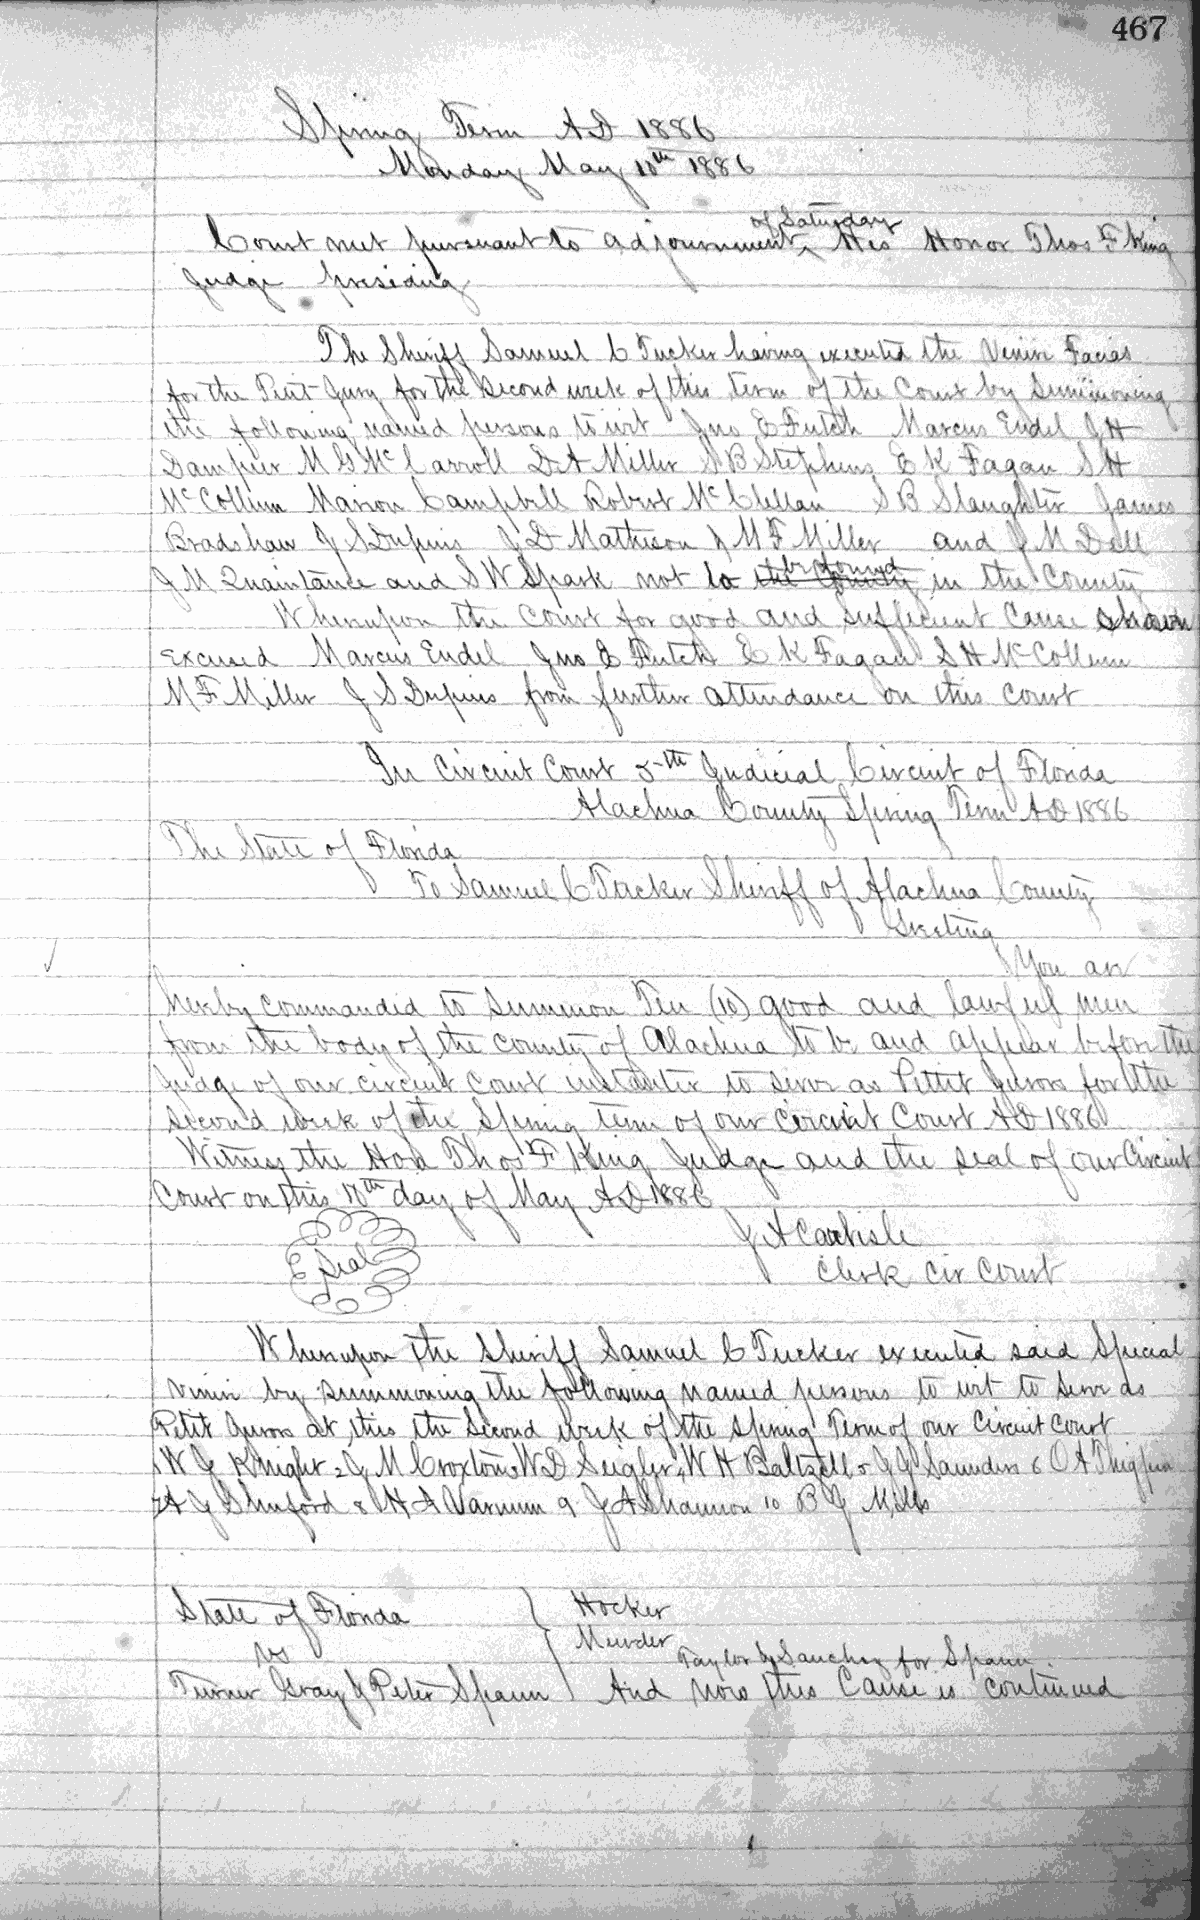 467
Spring Term AD 1886
Monday May 10th 1886
of Saturday
Court met pursuant to adjournment ^ His Honor Thos F King
Judge presiding
The Sheriff Samuel C Tucker having executed the Venire Facias
for the Petit Jury for the Second week of this term of the Court by Summoning
the following named persons to wit Jno E Futch Marcus Endel J H
Dampier M G McCarroll D A Miller S B Stephens E K Fagan S H
McCollum Marion Campbell Robert McClellan S B Slaughter James
Bradshaw J S Dupuis J D Mathison & M F Miller and J M Dell
be found
J M Quaintance and S W Spark not to the County in the County
Whereupon the Court for good and sufficient Cause shown
excused Marcus Endel Jno E Futch E K Fagan S H McCollum
M F Miller J S Dupuis from further attendance on this Court
In Circuit Court 5th Judicial Circuit of Florida
Alachua County Spring Term AD 1886
The State of Florida
To Samuel C Tucker Sheriff of Alachua County
Greeting
You are
hereby commanded to Summon Ten (10) good and lawful men
from the body of the county of Alachua to be and appear before the
Judge of our circuit court instanter to serve as Pettit Jurors for the
second week of the Spring term of our Circuit Court AD 1886
Witness the Hon Thos F King Judge and the seal of our Circuit
Court on this 10th day of May AD 1886
J A Carlisle
Seal
Clerk Cir Court
Whereupon the Sheriff Samuel C Tucker executed said Special
Venire by summoning the following named persons to wit to serve as
Petit Jurors at this the Second week of the Spring Term of our Circuit Court
1 W J Knight 2 J M Croxton 3 W D Seigler 4 W H Baltzell 5 J J Saunders 6 O A Thigpin
7 A J Shuford 8 H A Varnum 9 J A Shannon 10 B J Mills
State of Florida } Hocker
vs Murder Taylor & Sanchez for Spann.
Turner Gray & Peter Spann And now this Cause is continued